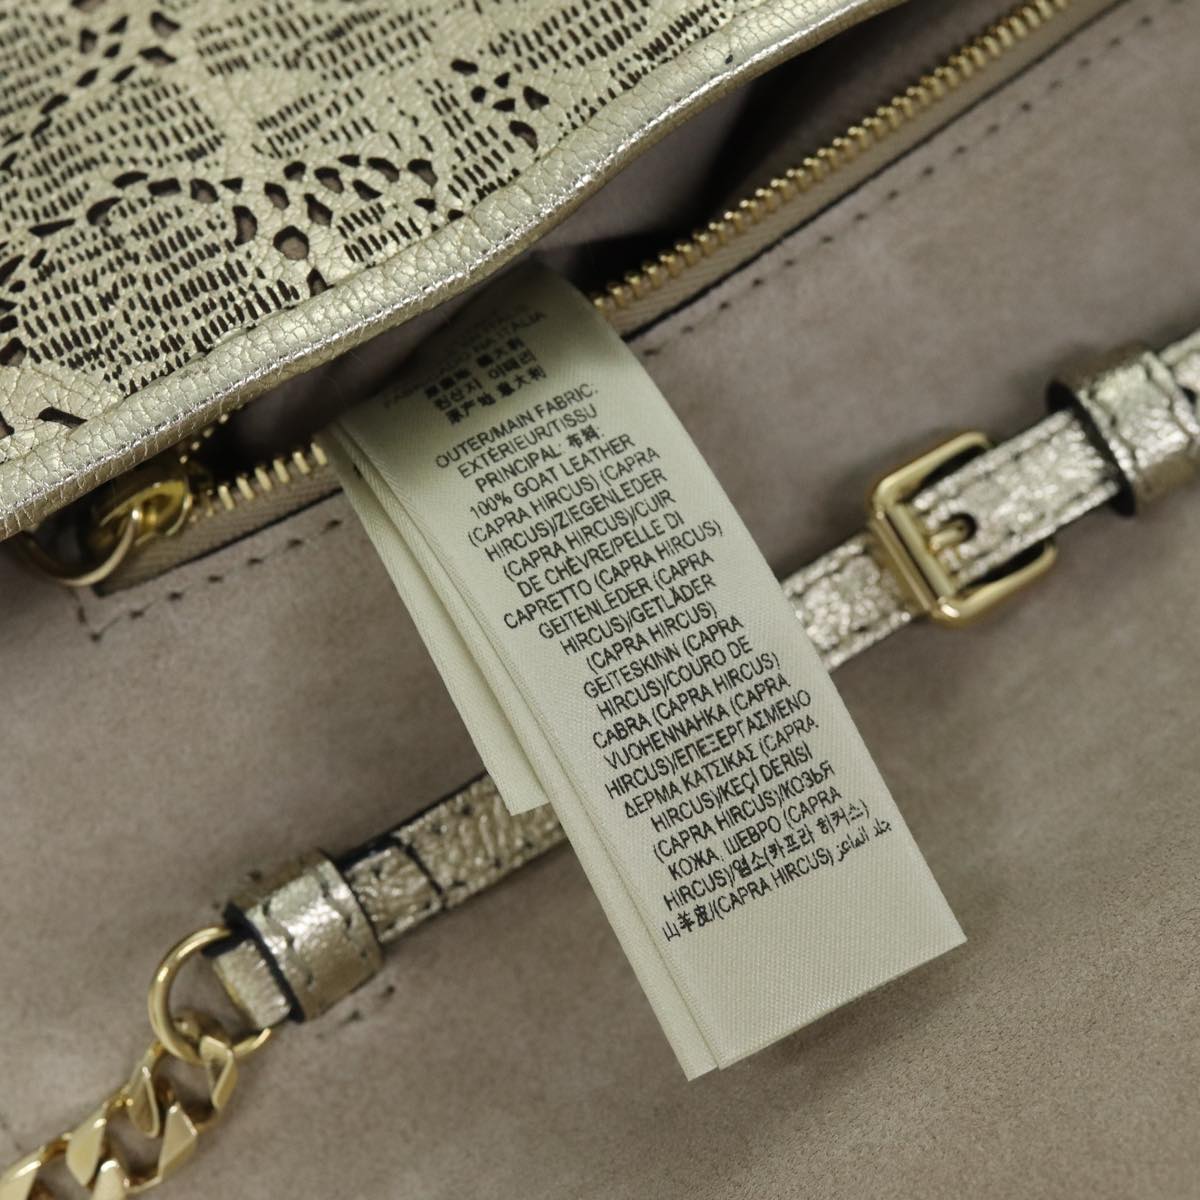 ITALIA
意大利
원산지 이태리
原产地 意大利
OUTER/MAIN FABRIC:
EXTÉRIEUR/TISSU
PRINCIPAL 布料
100% GOAT LEATHER
(CAPRA HIRCUS) (CAPRA
HIRCUS)/ZIEGENLEDER
(CAPRA HIRCUS)/CUIR
DE CHÈVRE/PELLE DI
CAPRETTO (CAPRA HIRCUS)
GEITENLEDER (CAPRA
HIRCUS)/GETLÄDER
(CAPRA HIRCUS)
GEITESKINN (CAPRA
HIRCUS)/COURO DE
CABRA (CAPRA HIRCUS)
VUOHENNAHKA (CAPRA
HIRCUS)/ΕΠΕΞΕΡΓΑΣΜΕΝΟ
ΔΕΡΜΑ ΚΑΤΣΙΚΑΣ (CAPRA
HIRCUS)/KEÇİ DERISI
(CAPRA HIRCUS)/КОЗЬЯ
КОЖА, ШЕВРО (CAPRA
HIRCUS)/염소(카프라 히커스)
山羊皮/(CAPRA HIRCUS) جلد الماعز